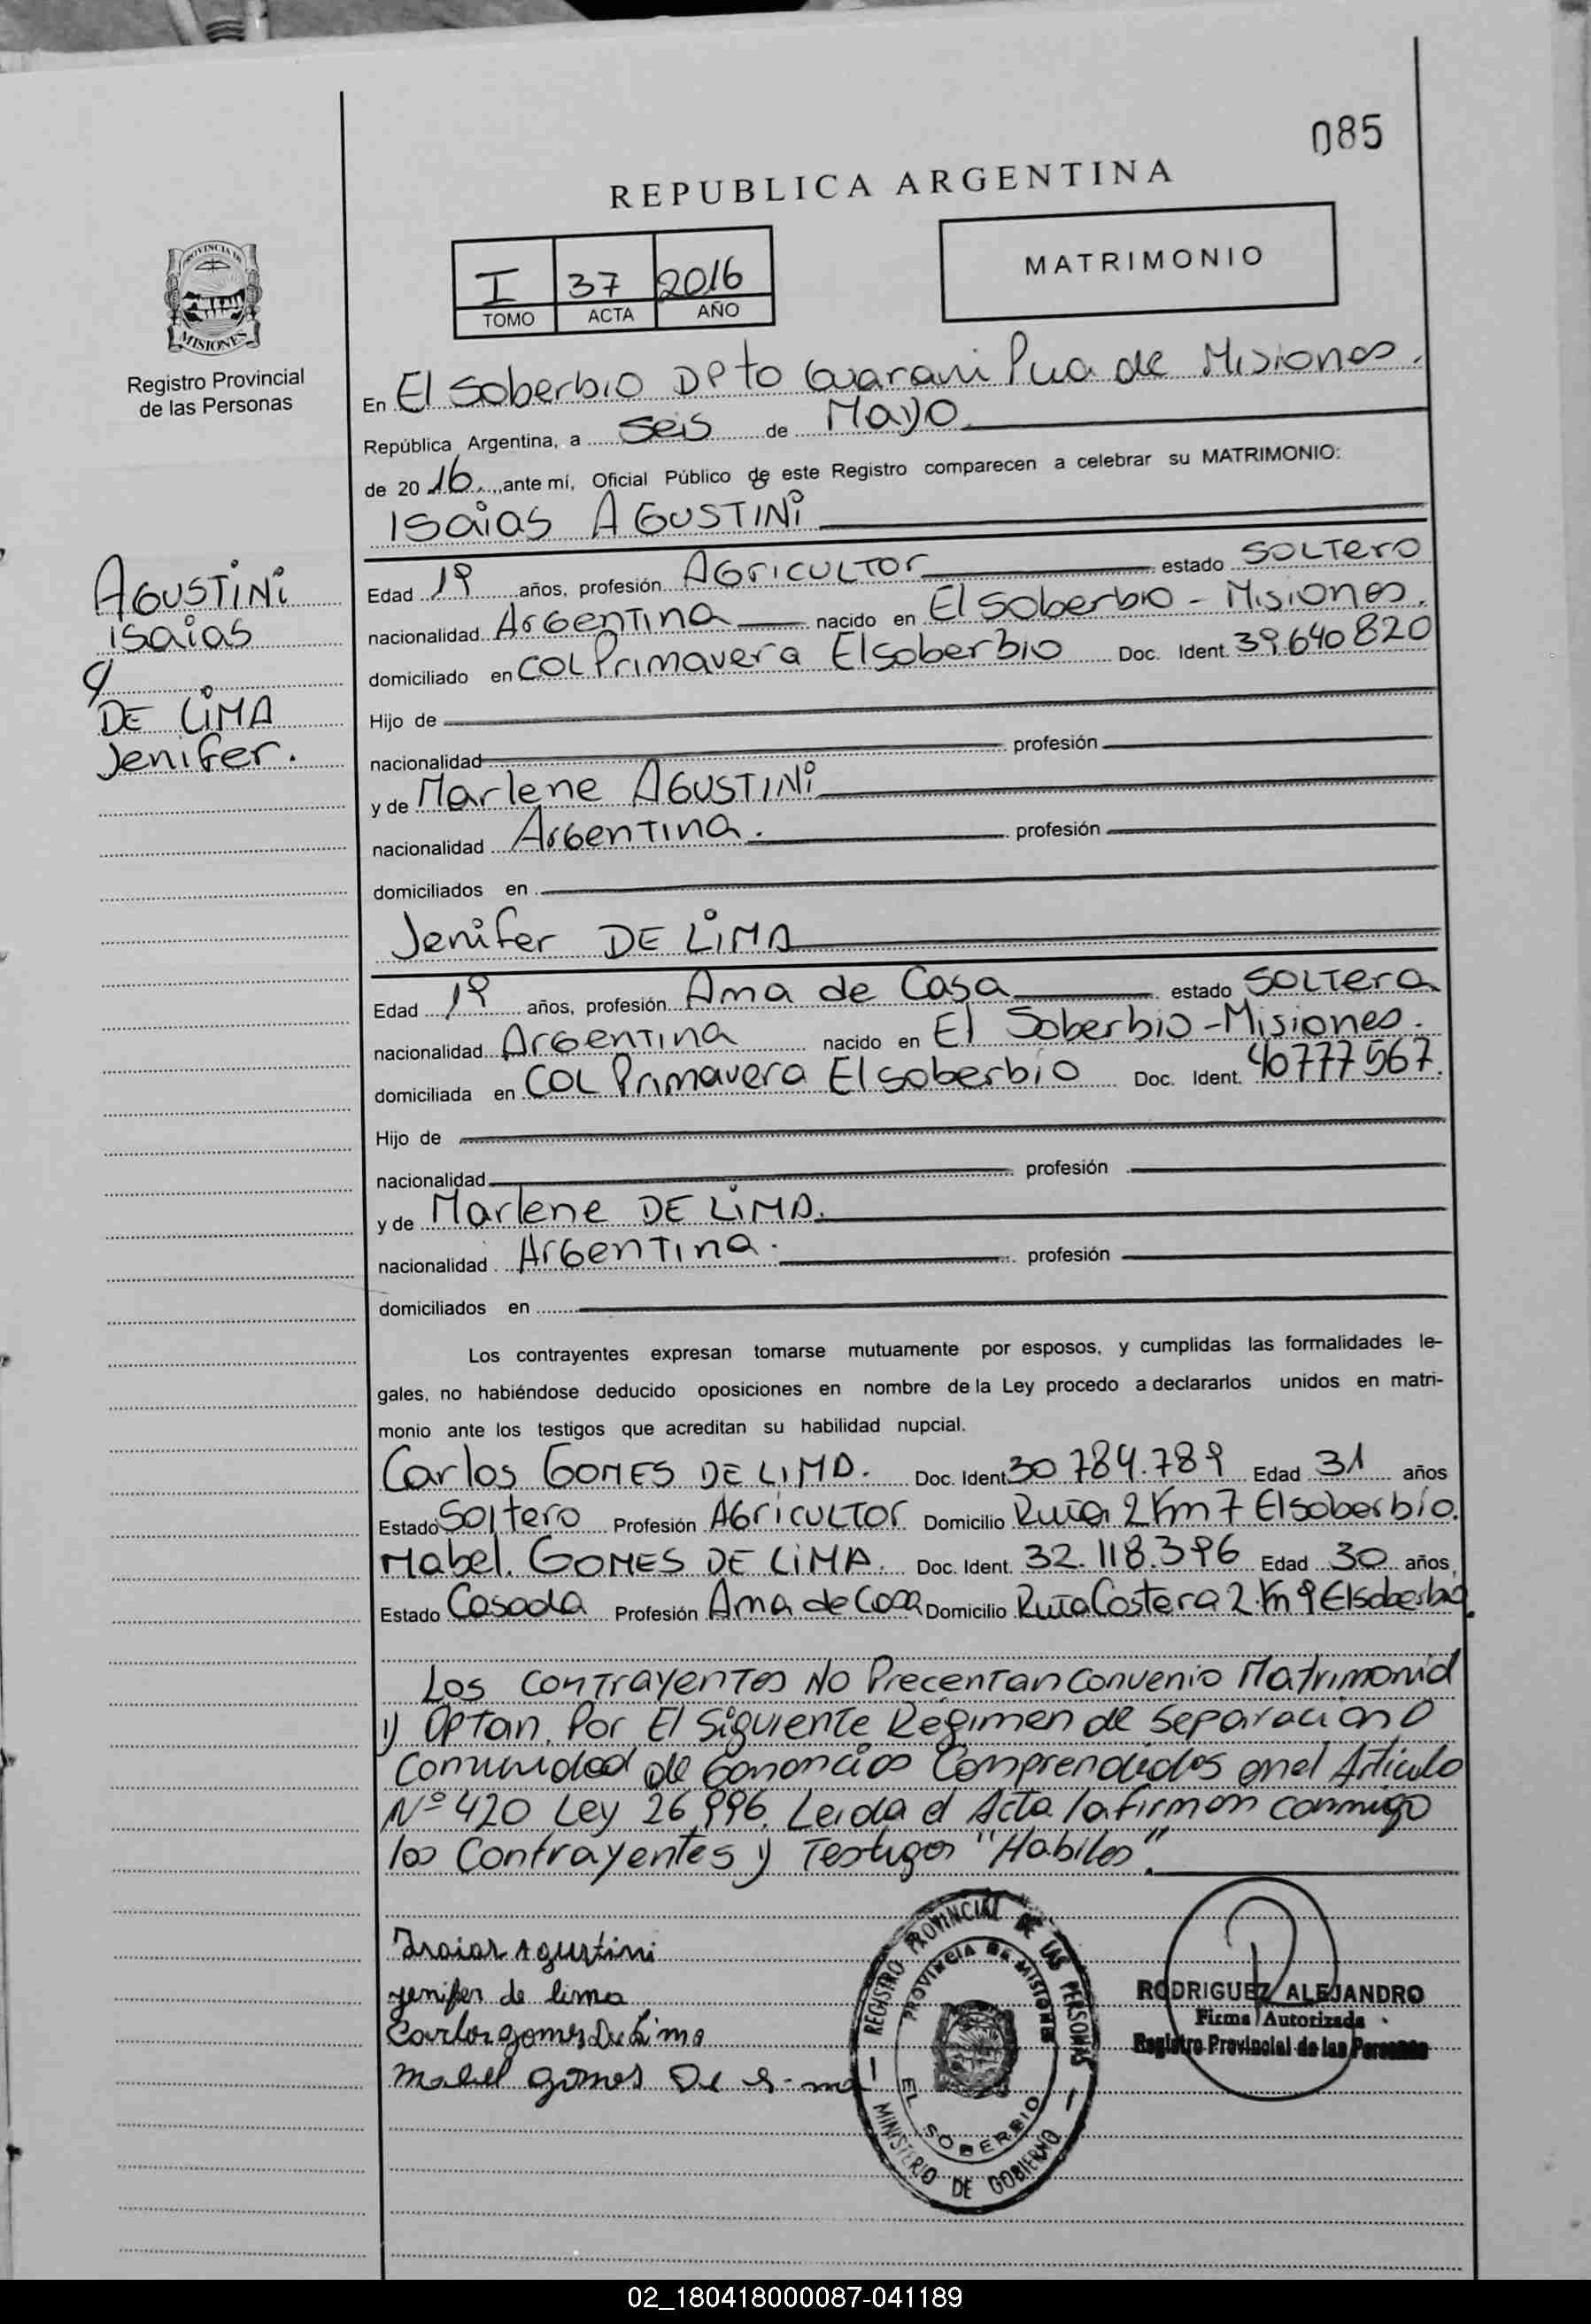 085
REPUBLICA ARGENTINA
PROVINCIA DE
MISIONES
Registro Provincial
de las Personas
I 37 2016
TOMO ACTA AÑO
MATRIMONIO
En El Soberbio Dpto Guarani Pcia de Misiones.
República Argentina, a seis de Mayo
de 20 16 ante mí, Oficial Público de este Registro comparecen a celebrar su MATRIMONIO:
Isaias AGUSTINi
AGUSTINi
isaias
y
DE LiMA
Jenifer.
Edad 19 años, profesión AGricULTOr estado SOLTero
nacionalidad ArGenTina nacido en El Soberbio - Misiones.
domiciliado en COL Primavera El soberbio Doc. Ident. 39.640820
Hijo de
nacionalidad profesión
y de Marlene AGUSTINi
nacionalidad ArGenTina. profesión
domiciliados en
Jenifer DE LiMA
Edad 19 años, profesión Ama de Casa estado SOLTera
nacionalidad ArGenTina nacido en El Soberbio - Misiones.
domiciliada en COL Primavera El soberbio Doc. Ident. 40777567.
Hijo de
nacionalidad profesión
y de Marlene DE LiMA.
nacionalidad ArGenTina. profesión
domiciliados en
Los contrayentes expresan tomarse mutuamente por esposos, y cumplidas las formalidades le-
gales, no habiéndose deducido oposiciones en nombre de la Ley procedo a declararlos unidos en matri-
monio ante los testigos que acreditan su habilidad nupcial.
Carlos GOMES DE LIMA. Doc. Ident. 30784.789 Edad 31 años
Estado Soltero Profesión AGricULTOr Domicilio Ruta 2 Km 7 El soberbio.
Mabel. GOMES DE LiMA. Doc. Ident. 32.118.396 Edad 30 años,
Estado Casada Profesión Ama de Casa Domicilio Ruta Costera 2 Km 9 El soberbio.
Los contrayentes No Precentan convenio Matrimonial
y Optan. Por El Siguiente Régimen de Separacion O
Comunidad de Ganancias Comprendidos en el Articulo
Nº 420 Ley 26,996. Leida el Acta la firman conmigo
los Contrayentes y Testigos "Habiles".
Isaias Agustini
Jenifer de lima
Carlos gomes De Lima
Mabel gomes De Li-ma
REGISTRO PROVINCIAL DE LAS PERSONAS
PROVINCIA DE MISIONES
EL SOBERBIO
MINISTERIO DE GOBIERNO
RODRIGUEZ ALEJANDRO
Firma Autorizada
Registro Provincial de las Personas
02_180418000087-041189